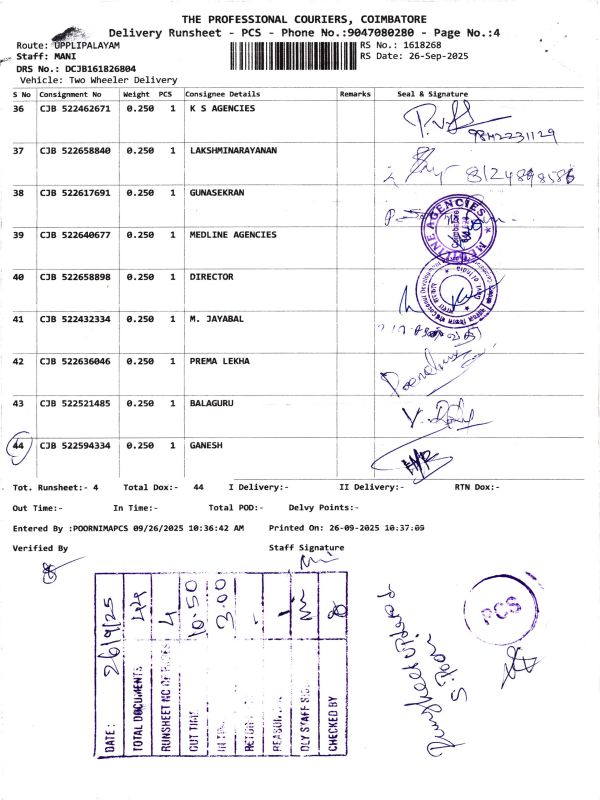 THE PROFESSIONAL COURIERS, COIMBATORE
Delivery Runsheet - PCS - Phone No.:9047080280 - Page No.:4
Route: UPPLIPALAYAM RS No.: 1618268
Staff: MANI RS Date: 26-Sep-2025
DRS No.: DCJB161826804
Vehicle: Two Wheeler Delivery
S No Consignment No Weight PCS Consignee Details Remarks Seal & Signature
36 CJB 522462671 0.250 1 K S AGENCIES
9842231129
37 CJB 522658840 0.250 1 LAKSHMINARAYANAN
8124898586
38 CJB 522617691 0.250 1 GUNASEKRAN
39 CJB 522640677 0.250 1 MEDLINE AGENCIES
MEDLINE AGENCIES
40 CJB 522658898 0.250 1 DIRECTOR
41 CJB 522432334 0.250 1 M. JAYABAL
42 CJB 522636046 0.250 1 PREMA LEKHA
43 CJB 522521485 0.250 1 BALAGURU
44 CJB 522594334 0.250 1 GANESH
Tot. Runsheet:- 4 Total Dox:- 44 I Delivery:- II Delivery:- RTN Dox:-
Out Time:- In Time:- Total POD:- Delvy Points:-
Entered By :POORNIMAPCS 09/26/2025 10:36:42 AM Printed On: 26-09-2025 10:37:09
Verified By Staff Signature
DATE: 26/9/25
TOTAL DOCUMENTS 44
RUNSHEET NO OF PAGES 4
OUT TIME 10:50
IN TIME 3.00
DLY STAFF SIG.
CHECKED BY
PCS
Runsheet Upload